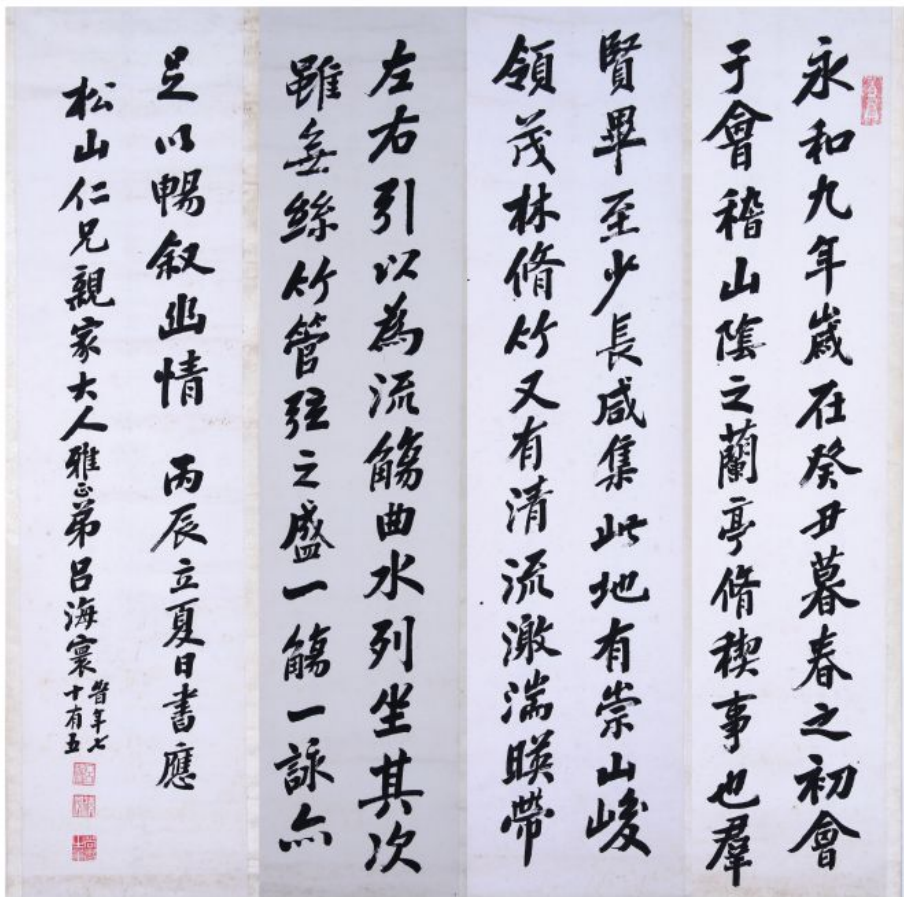 永和九年歲在癸丑暮春之初會
于會稽山陰之蘭亭脩稧事也羣
賢畢至少長咸集此地有崇山峻
領茂林脩竹又有清流激湍暎帶
左右引以為流觴曲水列坐其次
雖無絲竹管弦之盛一觴一詠亦
足以暢叙幽情 丙辰立夏日書應
松山仁兄親家大人雅正弟呂海寰
旹年七
十有五